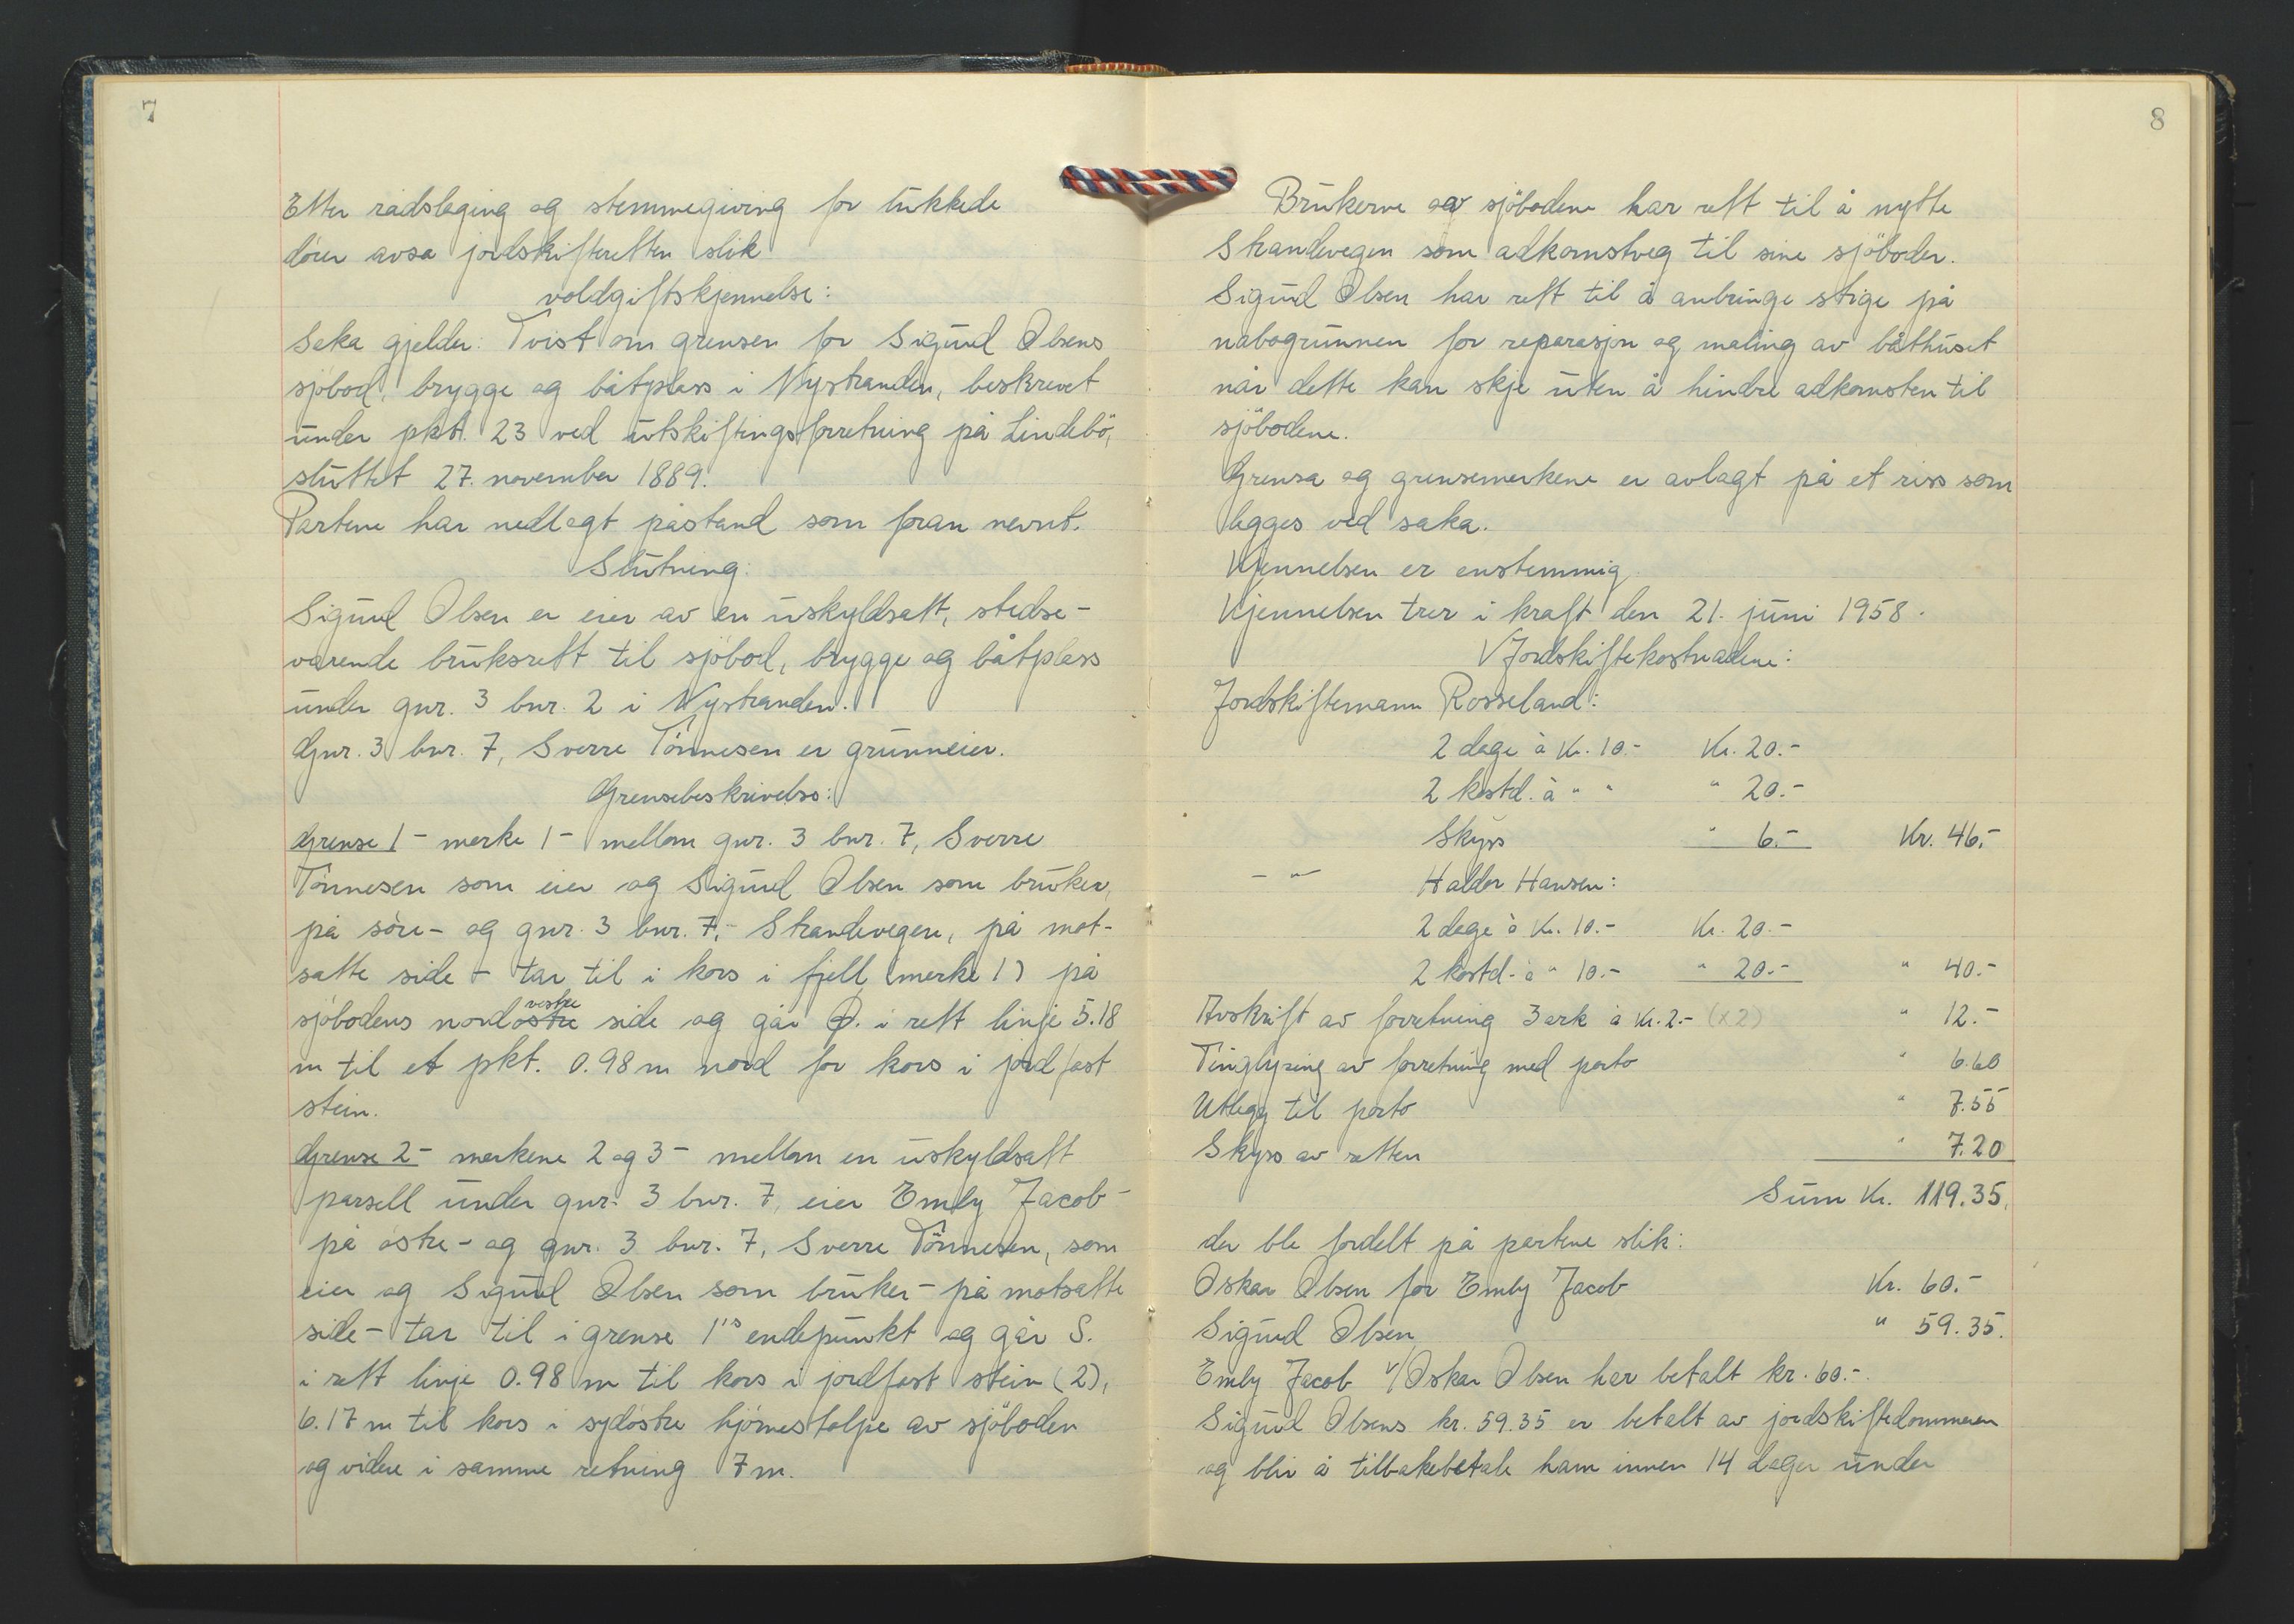 7
Etter rådslaging og stemmegiving for lukkede
dörer avsa jordskifteretten slik
voldgiftskjennelse:
Saka gjelder: Tvist om grensen for Sigurd Olsens
sjöbod, brygge og båtplass i Nystranden, beskrevet
under pkt. 23 ved utskiftingsforretning på Lindebö,
sluttet 27. november 1889.
Partene har nedlagt påstand som foran nevnt.
Slutning:
Sigurd Olsen er eier av en uskyldsatt, stedse-
varende bruksrett til sjöbod, brygge og båtplass
under gnr. 3 bnr. 2 i Nystranden.
Gnr. 3 bnr. 7, Sverre Tönnesen er grunneier.
Grensebeskrivelse:
Grense 1 - merke 1 - mellom gnr. 3 bnr. 7, Sverre
Tönnesen som eier og Sigurd Olsen som bruker,
på söre - og gnr. 3 bnr. 7, - Strandvegen, på mot-
satte side - tar til i kors i fjell (merke 1) på
vestre
sjöbodens nordöstre side og går Ø. i rett linje 5.18
m til et pkt. 0.98 m nord for kors i jordfast
stein.
Grense 2 - merkene 2 og 3 - mellom en uskyldsatt
parsell under gnr. 3 bnr. 7, eier Emly Jacob -
på östre - og gnr. 3 bnr. 7, Sverre Tönnesen, som
eier og Sigurd Olsen som bruker - på motsatte
side - tar til i grense 1's endepunkt og går S.
i rett linje 0.98 m til kors i jordfast stein (2),
6.17 m til kors i sydöstre hjörnestolpe av sjöboden
og videre i samme retning 7 m.
8
Brukerne av sjöbodene har rett til å nytte
Strandvegen som adkomstveg til sine sjöboder.
Sigurd Olsen har rett til å anbringe stige på
nabogrunnen for reparasjon og maling av båthuset
når dette kan skje uten å hindre adkomsten til
sjöbodene.
Grensa og grensemerkene er avlagt på et riss som
legges ved saka.
Kjennelsen er enstemmig.
Kjennelsen trer i kraft den 21. juni 1958.
Jordskiftekostnadene:
Jordskiftemann Rosseland:
2 dage à Kr. 10.- Kr. 20.-
2 kostd. à " " " 20.-
Skyss " 6.- Kr. 46.-
- " - Halder Hansen:
2 dage à Kr. 10.- Kr. 20.-
2 kostd. à " 10.- " 20.- " 40.-
Avskrift av forretning 3 ark à Kr. 2.- (x2) " 12.-
Tinglysing av forretning med porto " 6.60
Utlegg til porto " 7.55
Skyss av retten " 7.20
Sum Kr. 119.35.
der ble fordelt på partene slik:
Oskar Olsen for Emly Jacob Kr. 60.-
Sigurd Olsen " 59.35.
Emly Jacob v/Oskar Olsen har betalt kr. 60.-.
Sigurd Olsens kr. 59.35 er betalt av jordskiftedommeren
og blir å tilbakebetale ham innen 14 dager under